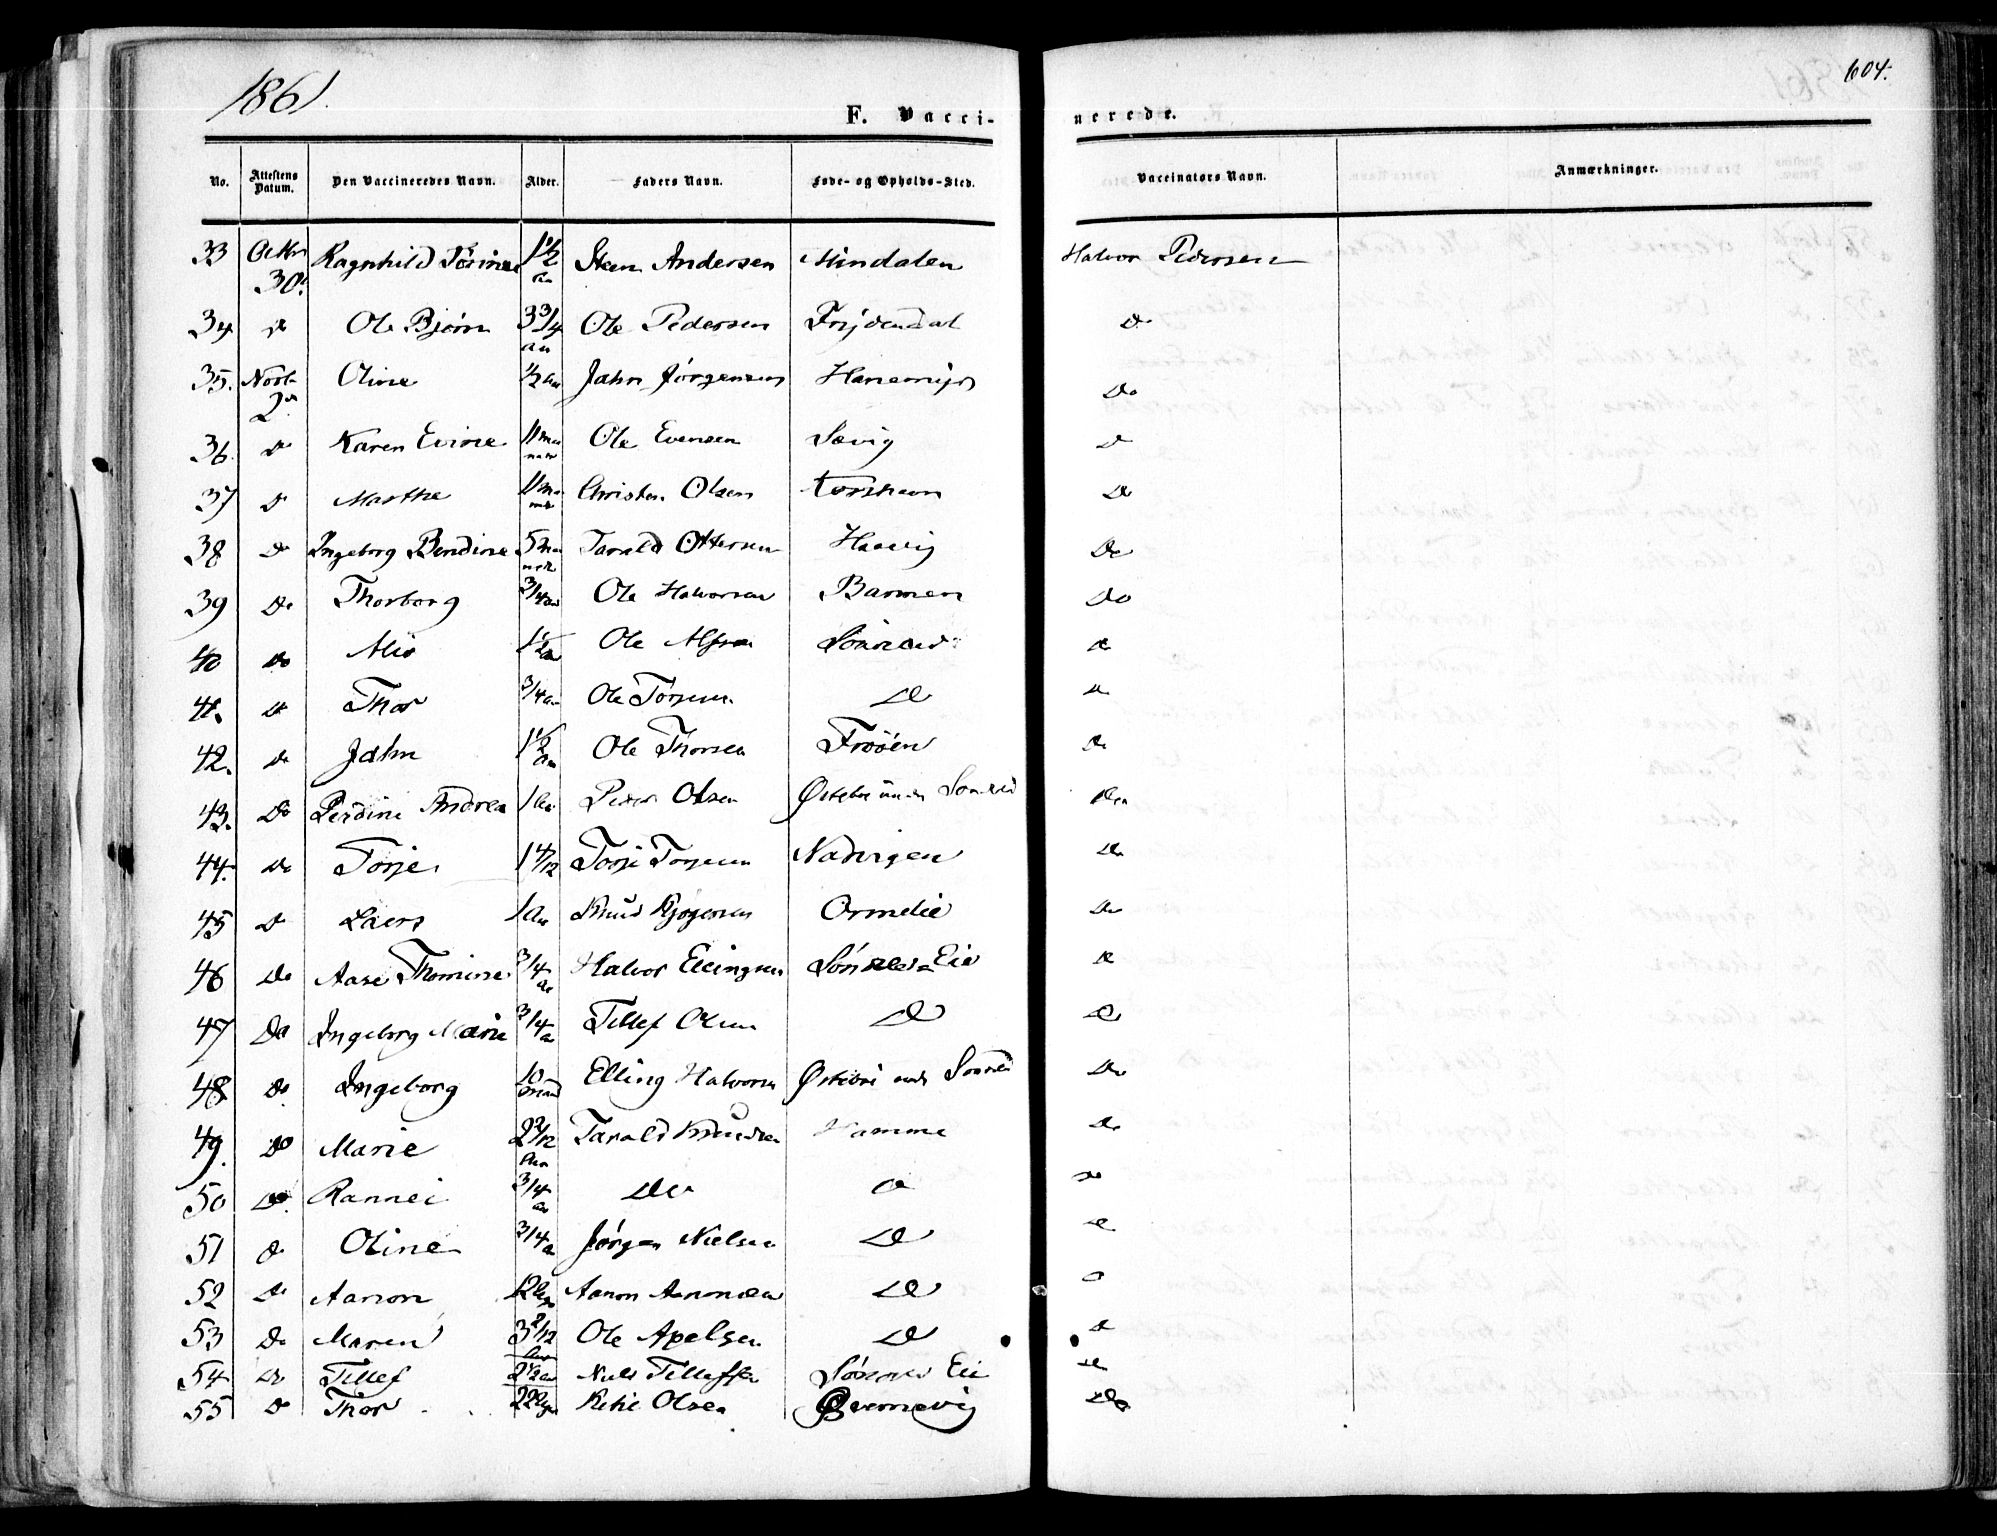 1861.
604.
F. Vacci-nerede.
No. Attestens Datum. Den Vaccineredes Navn. Alder. Faders Navn. Føde- og Opholds-Sted. Vaccinators Navn. Anmærkninger.
33 Octbr 30. Ragnhild 1 1/2 Aar Steen Andersen Mindalen Halvor Pedersen
34 Do Ole Bjørn 3 3/4 aar Ole Pedersen Frydendal Do
35. Novb 2. Oline 1/2 aar Jahn Jørgensen Hanemyr Do
36. Do Karen Evine 11 maaneder Ole Evensen Sævig Do
37 Do Marthe 11 Christen Olsen Do
38 Do Ingeborg Bendine 5 Tarald Ottersen Haavig Do
39 Do Thorborg 3/4 aar Ole Halvorsen Barmen Do
40 Do 1 1/2 aar Ole Do
41. Do Thor 3/4 aar Ole Torjesen Do Do
42. Do Jahn 1 1/2 Aar Ole Thorsen Do
43. Do Perdine Andrea 1 Aar Peder Olsen Do
44. Do Torje 1 4/12 Torje Torjesen Nadvigen Do
45 Do Laers 1 Aar Knud Ormelie Do
46 Do Aase Thomine 3/4 aar Halvor Eie Do
47 Do Ingeborg Marie 3/4 aar Tellef Olsen Do Do
48 Do Ingeborg 10 Elling Halvorsen Do
49. Do Marie 2 2/12 Aar Tarald Knudsen Hamme Do
50 Do. Rannei 3/4 aar Do Do Do
51 Do Oline 3/4 a Jørgen Nielsen Do Do
52 Do Aanon Aanon Aanonsen Do Do
53 Do Maren 3 2/12 Ole Apelsen Do Do
54 Do Tellef 2 1/2 aar Niels Tellefsen Eie Do
55 Do Thor Olsen Do